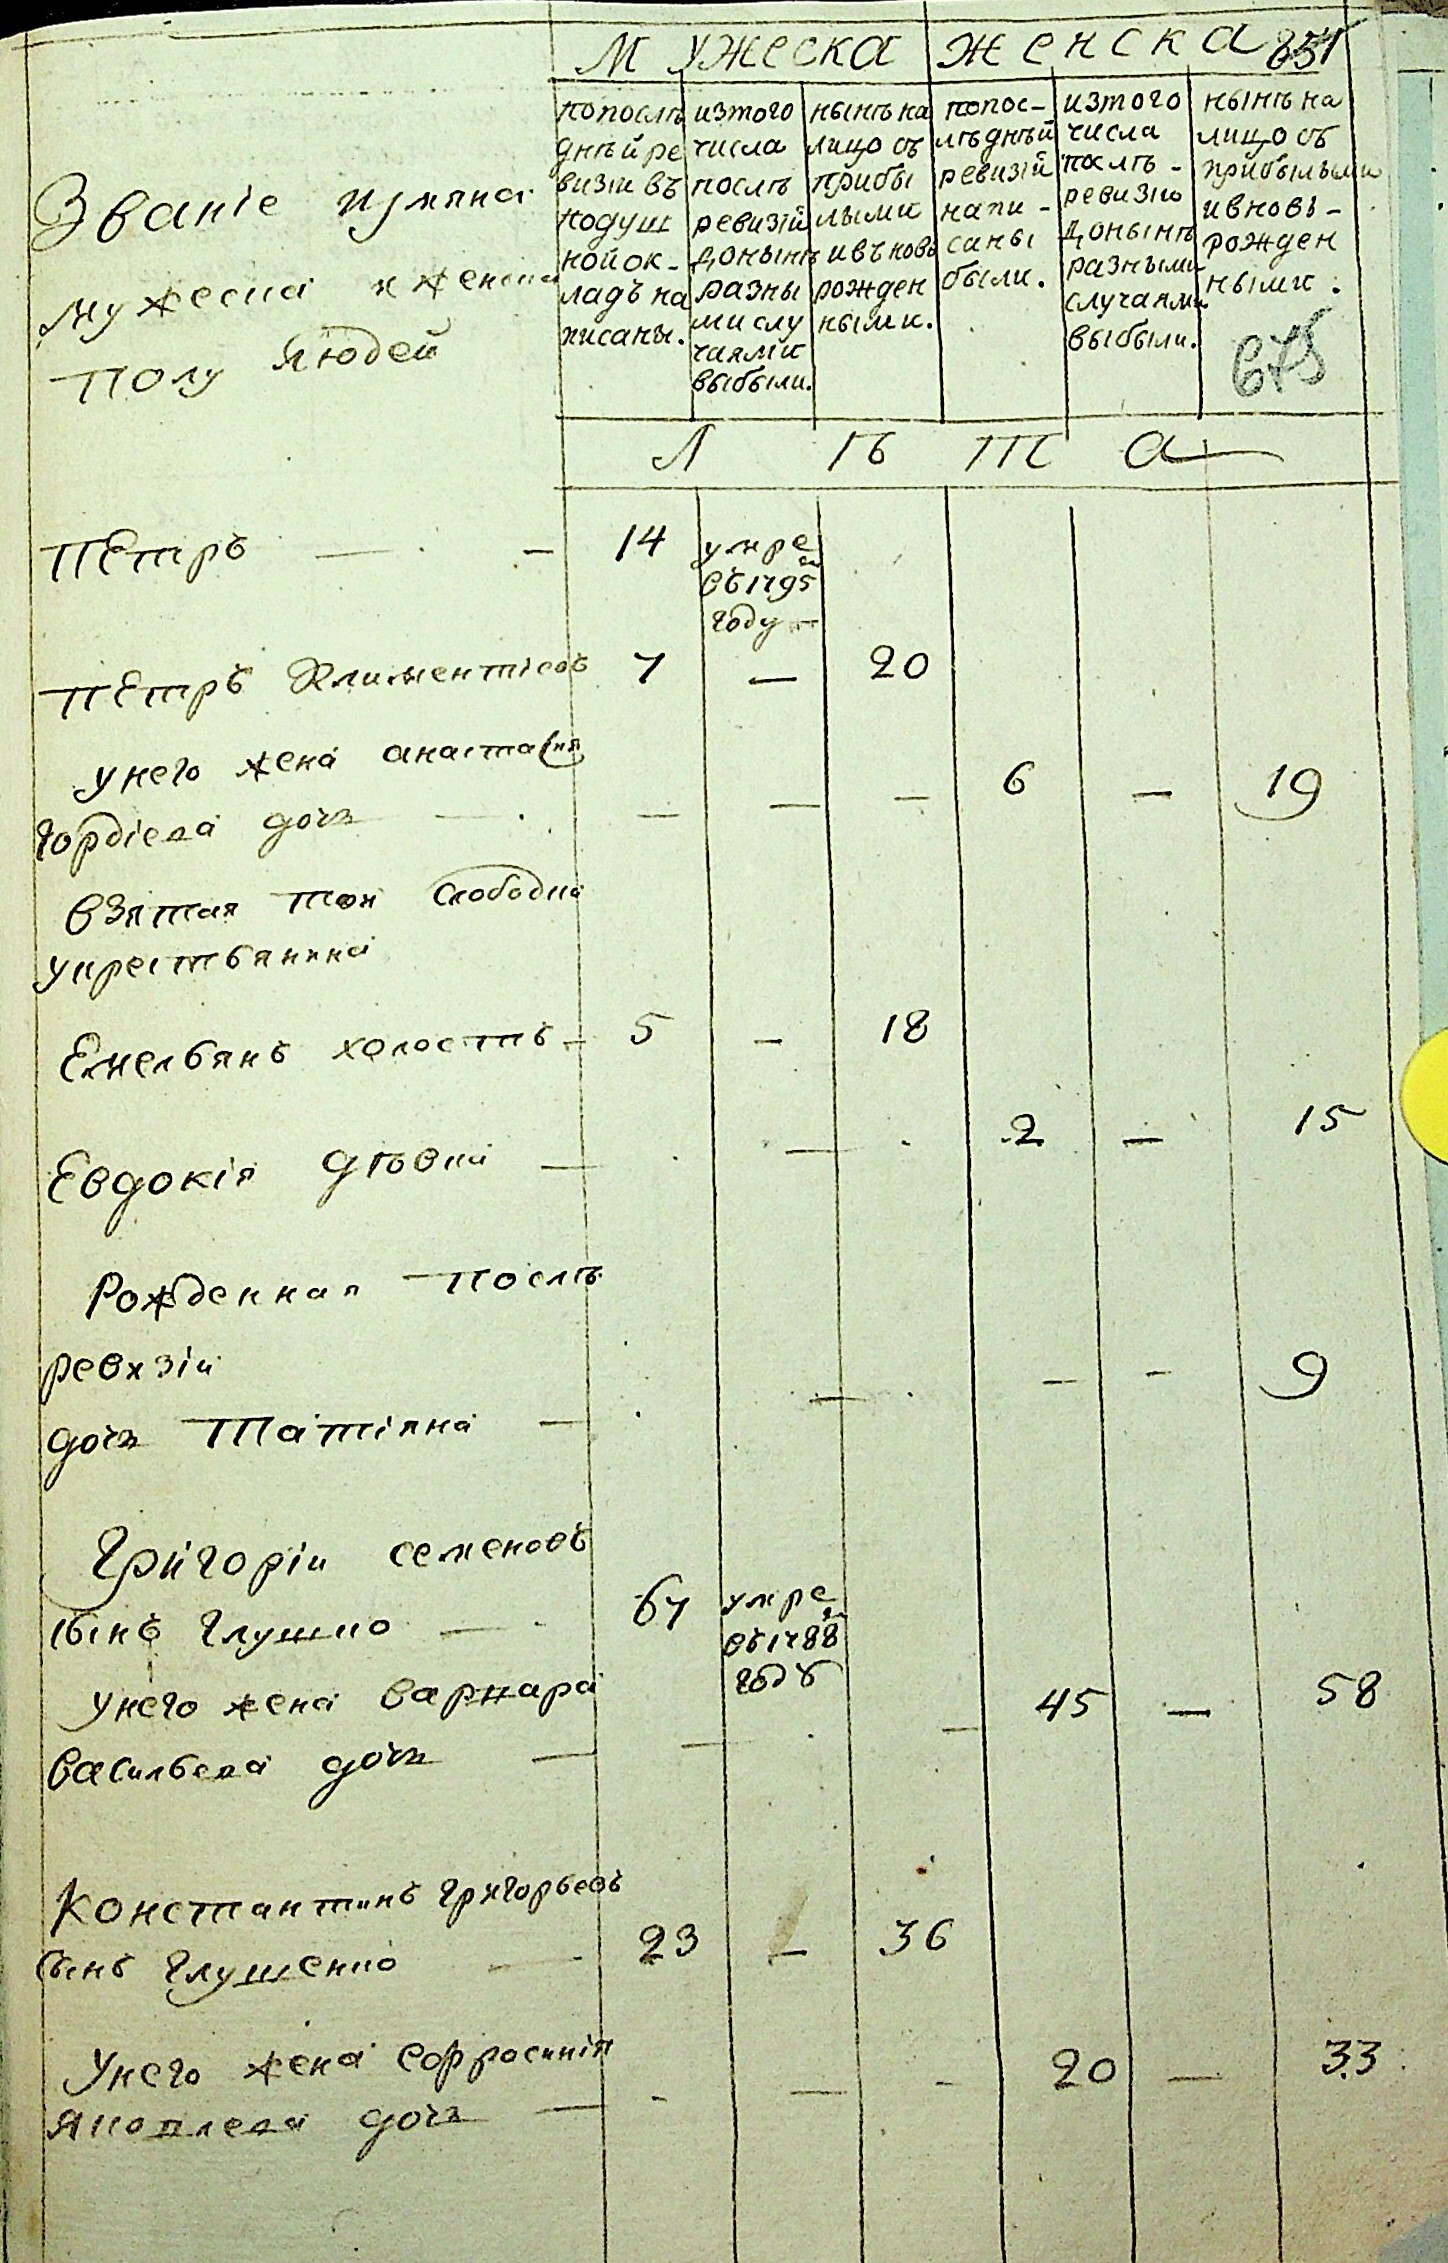 Мужеска женска 651
Званіе иимяна
мужеска иженска
полу людей
попослѣ
днѣй ре
визіи въ
подуш
ной ок-
ладъ на
писаны.
изтого
числа
послѣ
ревизіи
донынѣ
разны
мислу
чаями
выбыли.
нынѣ на
лицо съ
прибы
лыми
ивъновь
рожден
ными.
попос-
лѣднѣй
ревизіи
напи-
саны
были.
изтого
числа
послѣ-
ревизіи
донынѣ
разными
случаями
выбыли.
нынѣ на
лицо съ
прибылыми
ивновь-
рожден
ными.
675
Л ѣ т а
Петръ — - 14 умре
въ 1795м
году -
Петръ Климентіевъ 7 — 20
унего жена анастасия 6 — 19
гордіева дочь — — — —
взятая той слободки
укрестьянина
Емельянъ холостъ - 5 - 18
Евдокія дѣвка — — 2 — 15
Рожденная послѣ
ревизіи 9
дочь Татіяна — — - -
Григоріи семеновъ
сынъ Глушко — 67 умре
въ 1788м
году
унего жена варвара 45 — 58
васильева дочь — — —
Константинъ григорьевъ
сынъ глушенко — 23 — 36
Унего жена ефросинія 20 — 33
яковлева дочь — - — -